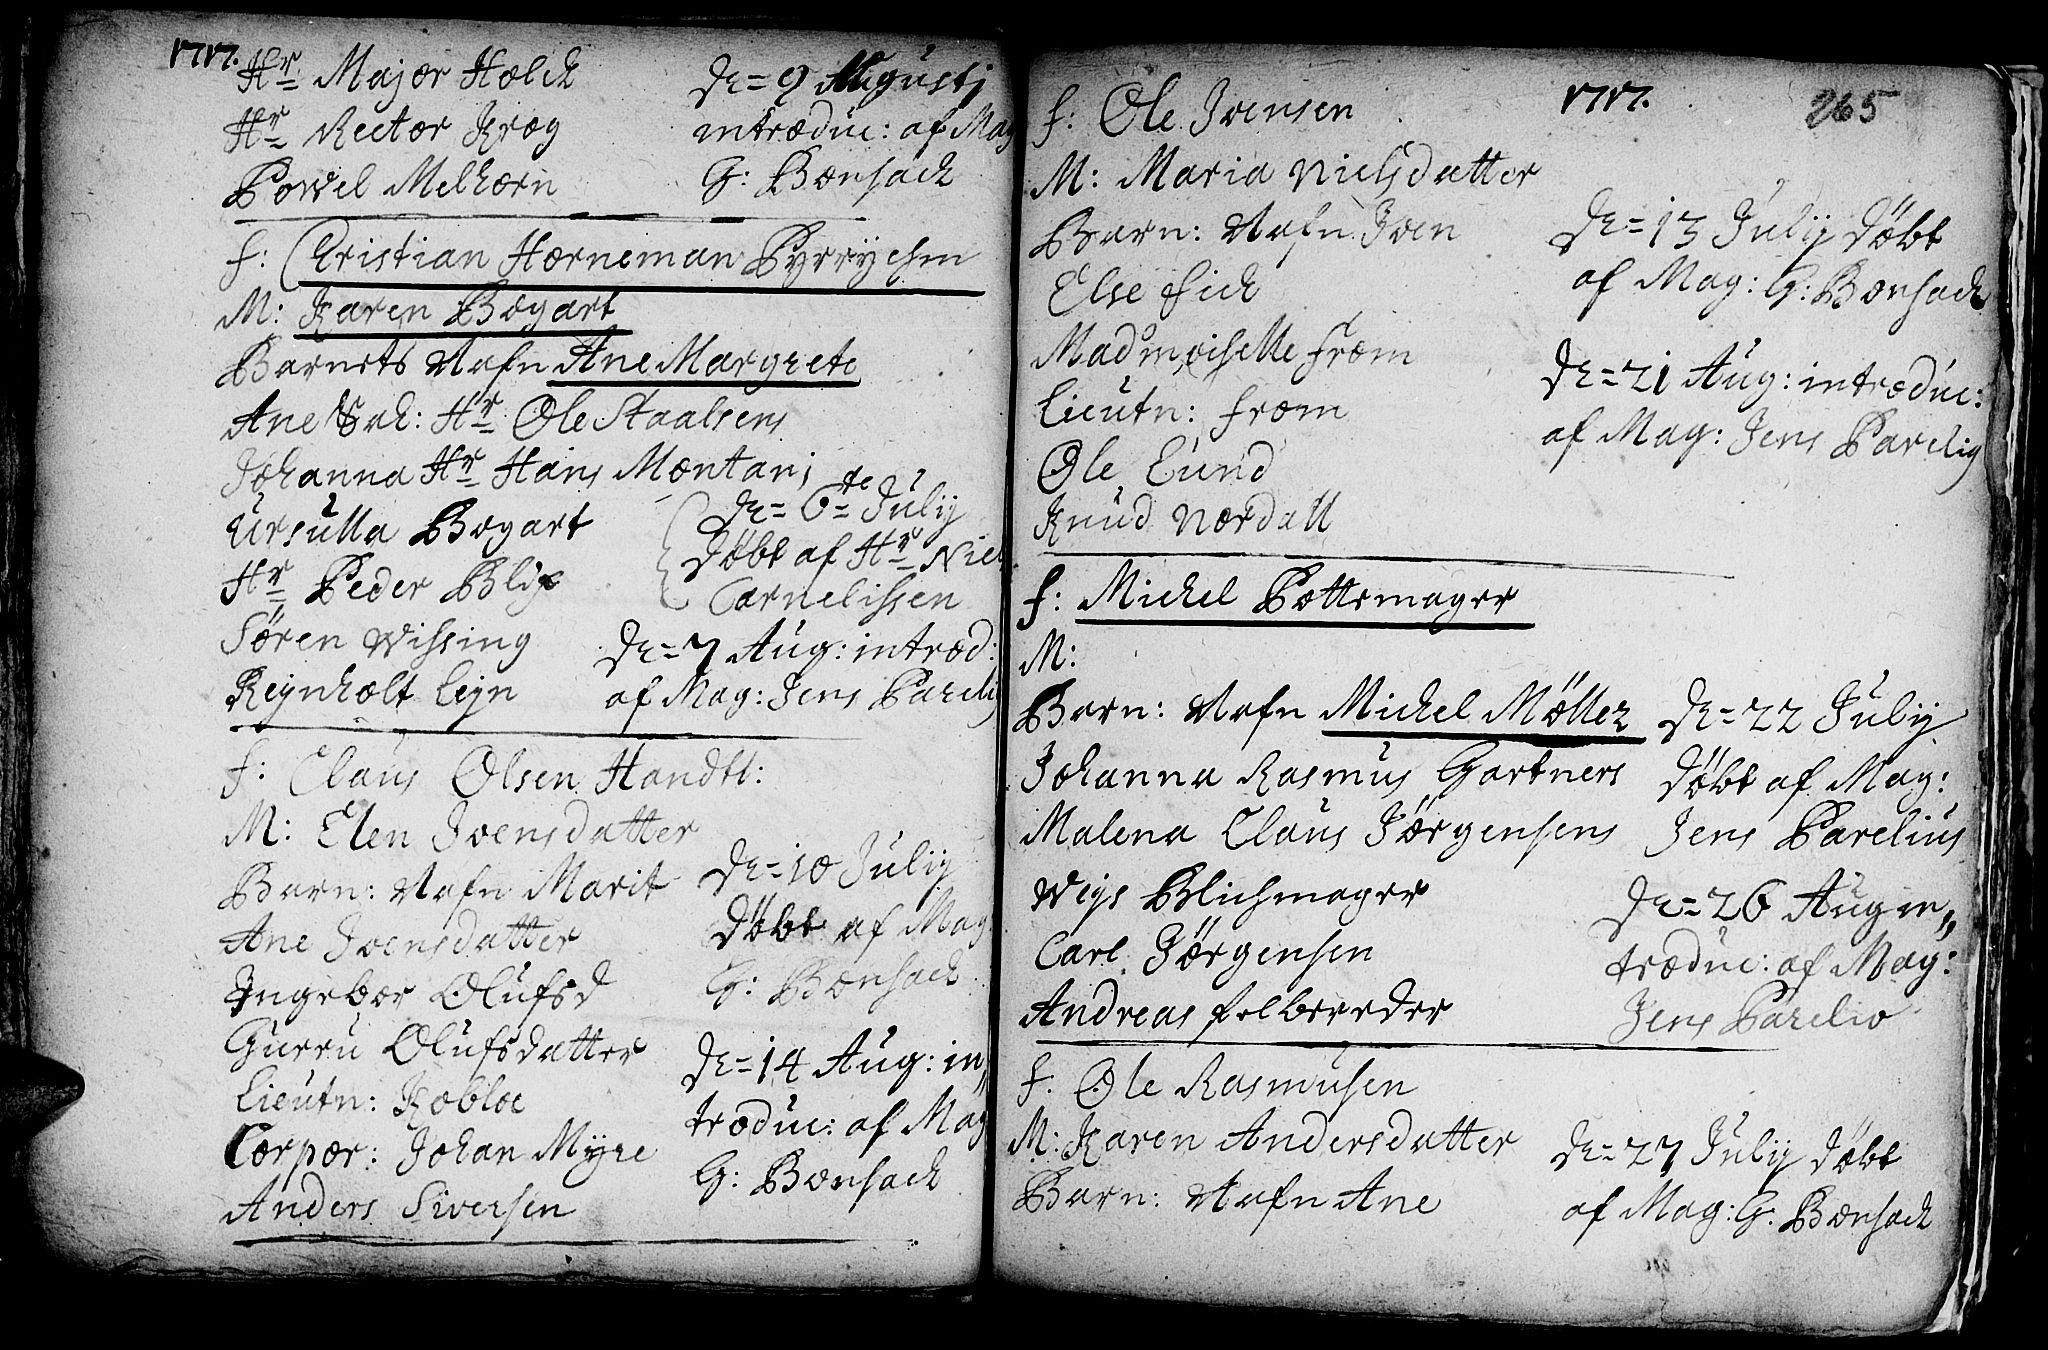 1717.
Hr Major Holck
Hr Rector Krog
Powel Melhorn
De= 9 Augustj
introduc: af Mag
G: Bonsach
f: Cristian Horneman Byrrychm
M: Karen Bogart
Barnets Nafn Ane Margrete
Ane Sal: Hr Ole Staalsens
Johanna Hr Hans Montanj
Ursulla Bogart
Hr Peder Blix
Sören Wissing
Reynholt Leyn
De= 6te July
döbt af Hr Niel
Cornelissen
De= 7 Aug: introd:
af Mag: Jens Pareli
f: Claus Olsen Handtl:
M: Elen Joensdatter
Barn: Nafn Marit
Ane Joensdatter
Ingebor Olufsd
Gurru Olufsdatter
Lieutn: Kobloe
Corpor: Johan Myre
Anders Siversen
De= 10 July
döbt af Mag
G: Bonsach
De= 14 Aug: in,,
troduc: af Mag
G: Bonsach
1717.
265
f: Ole Joensen
M: Maria Nielsdatter
Barn: Nafn Joen
Else Fick
Madmoiselle From
Lieutn: From
Ole Lund
Knud Nordall
De= 13 July döbt
af Mag: G: Bonsach
De= 21 Aug: introduc:
af Mag: Jens Parelig
f: Michel Pottemager
M:
Barn: Nafn Michel Möller
Johanna Rasmus Gartners
Malena Claus Jörgensens
Weys Blichmager
Carl Jörgensen
Andreas Felbereder
De= 22 July
döbt af Mag:
Jens Parelius
De= 26 Aug in,,
troduc: af Mag:
Jens Parelio
f: Ole Rasmusen
M: Karen Andersdatter
Barn: Nafn Ane
De= 27 July döbt
af Mag: G: Bonsach